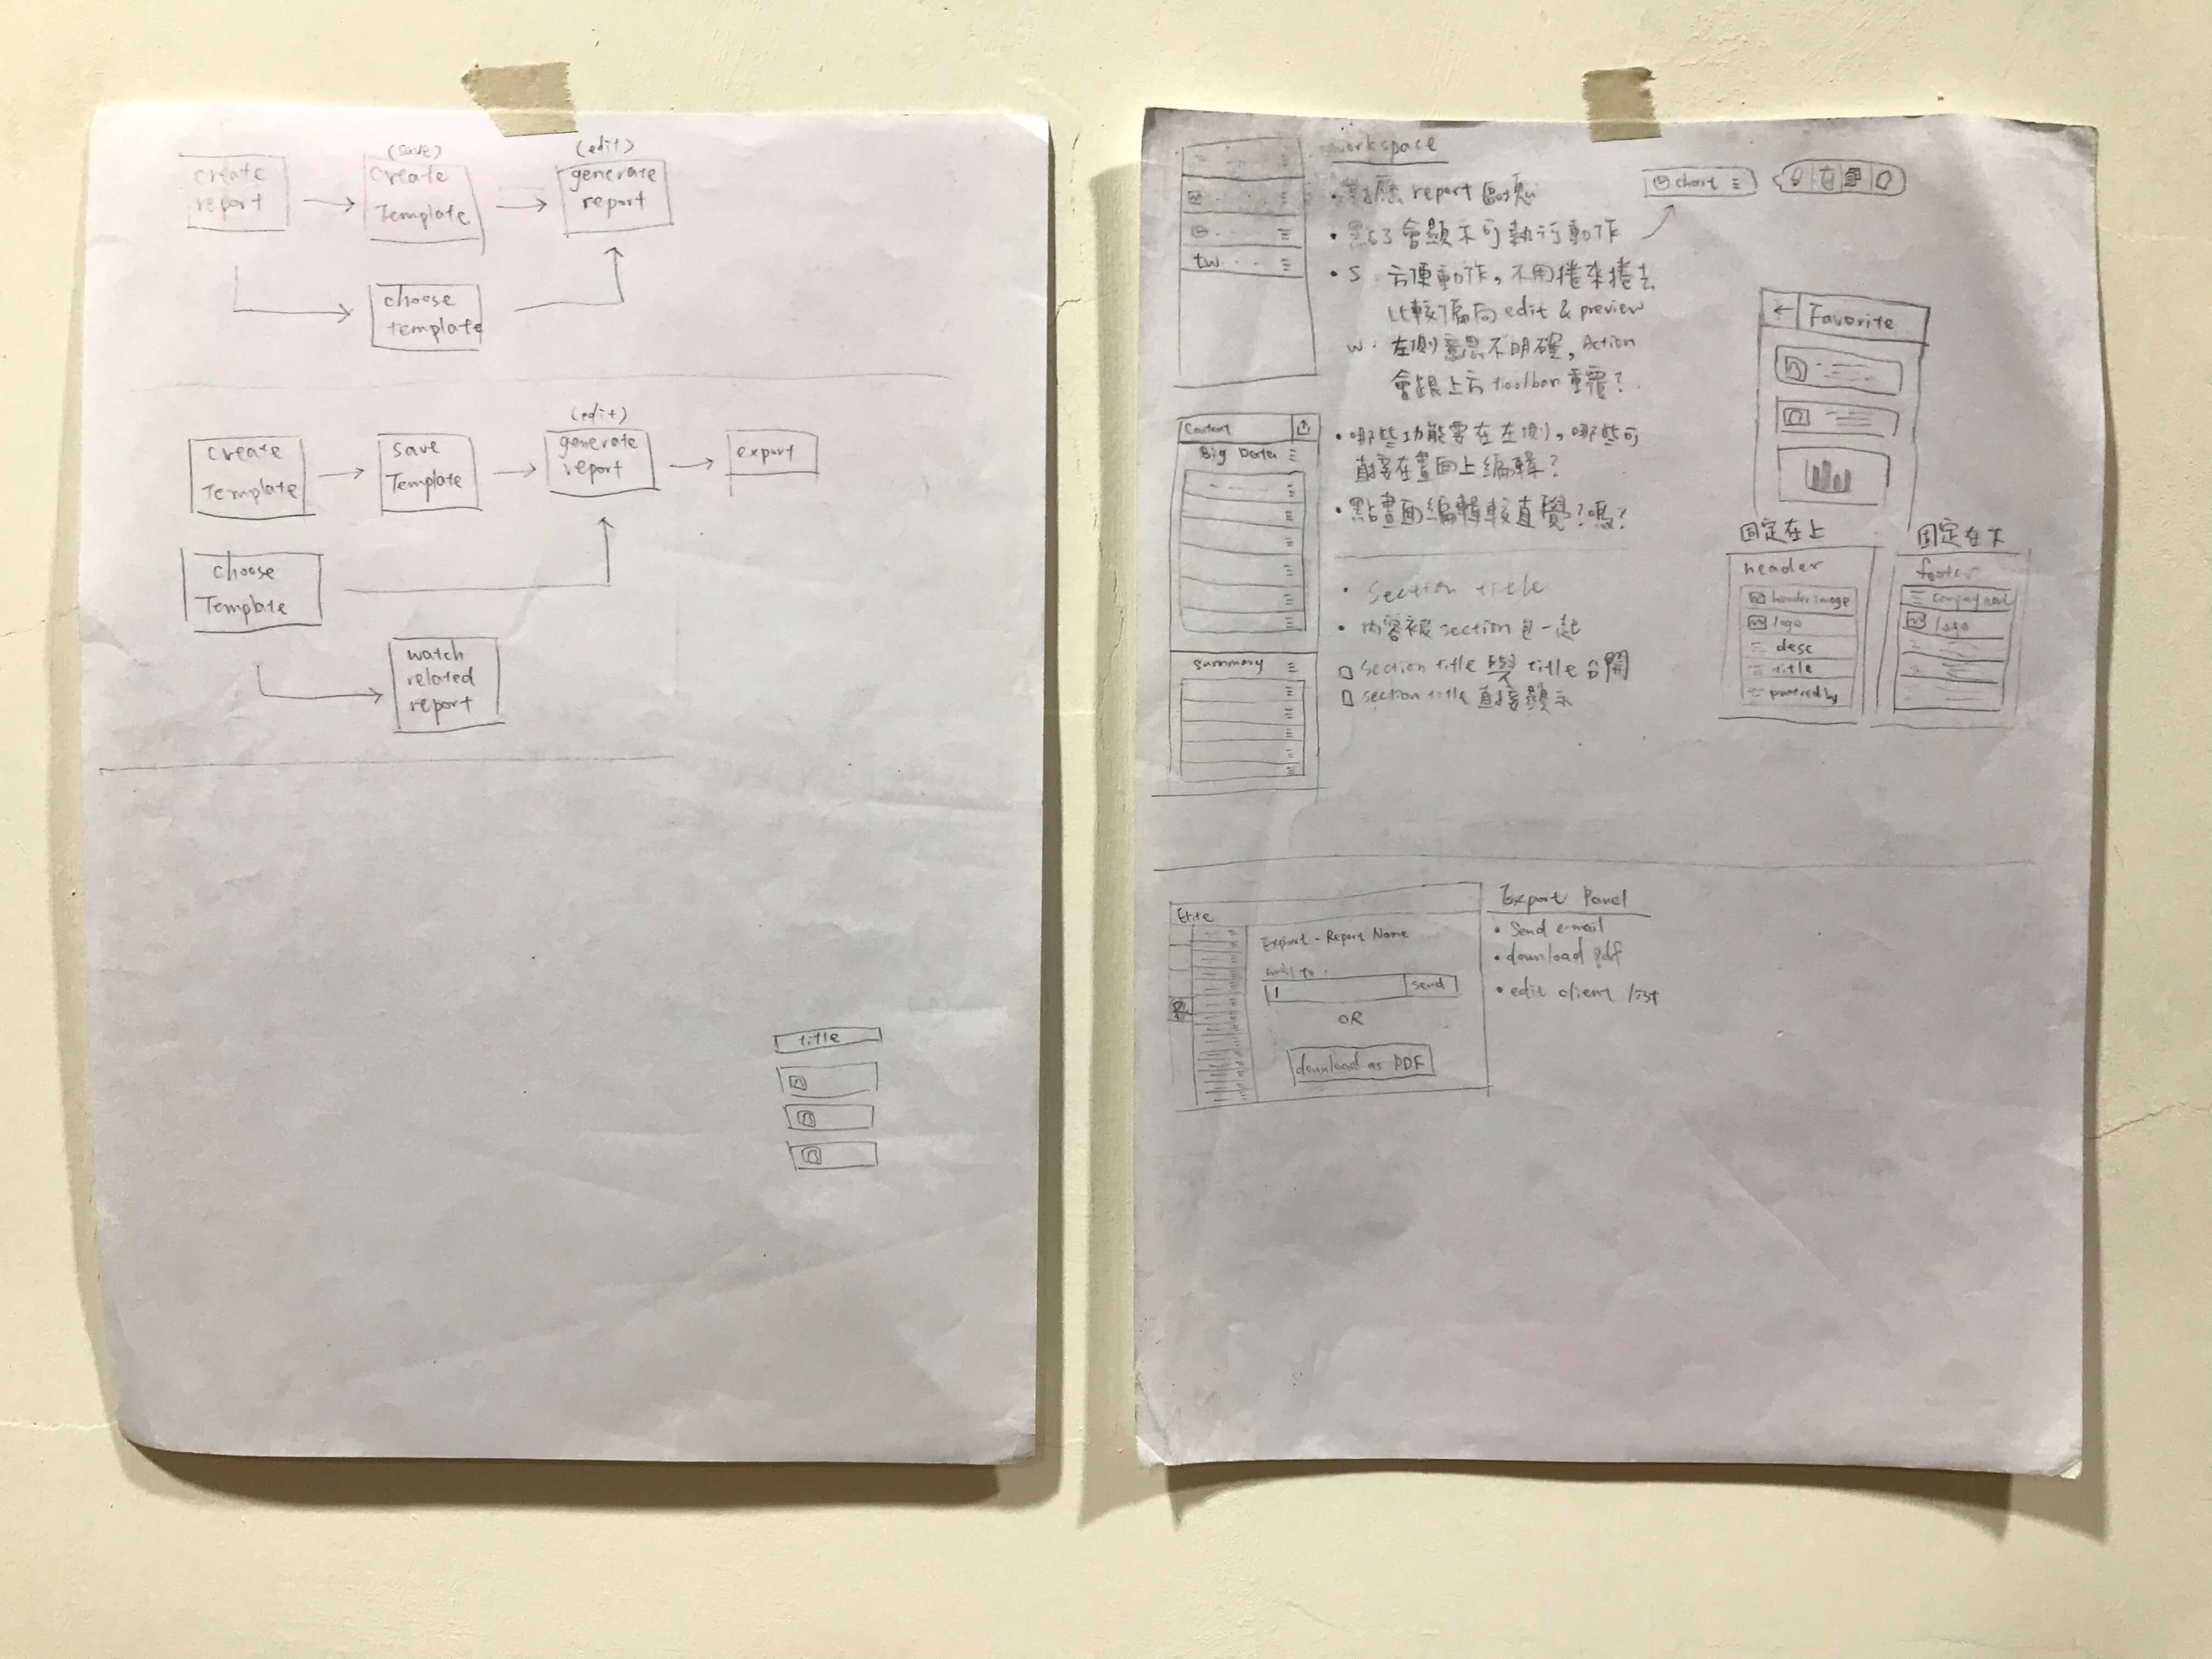 create
report
(save)
create
Template
(edit)
generate
report
choose
template
create
Template
save
Template
(edit)
generate
report
export
choose
Template
watch
related
report
title
workspace
report
• 點了會顯示可執行動作
chart
tw
• S. 方便動作，不用捲來捲去
比較偏向 edit & preview
W. 左側意思不明確，Action
會跟上方 toolbar 重覆？
Content
Big Data
• 哪些功能要在左側，哪些可
直接在畫面上編輯？
• 點畫面編輯較直覺？嗎？
• Section title
• 內容被 section 包一起
section title 與 title 分開
section title 直接顯示
summary
← Favorite
固定在上
header
header image
logo
desc
title
powered by
固定在下
footer
logo
Export - Report Name
send
OR
download as PDF
Export Panel
• Send e-mail
• download pdf
• edit client list